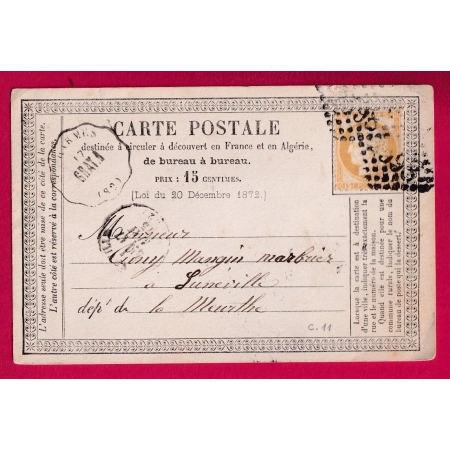 CARTE POSTALE
destinée à circuler à découvert en France et en Algérie,
de bureau à bureau.
PRIX : 15 CENTIMES.
(Loi du 20 Décembre 1872.)
L'adresse seule doit être mise de ce côté de la carte.
L'autre côté est réservé à la correspondance.
GRAY
Monsieur
Mangin marbrier
à Lunéville
dépt de la Meurthe
Lorsque la carte est à destination
d'une ville, indiquer très exactement la
rue et le numéro de la maison.
Quand elle est destinée pour une
commune rurale, indiquer le nom du
bureau de poste qui la dessert.
C.11